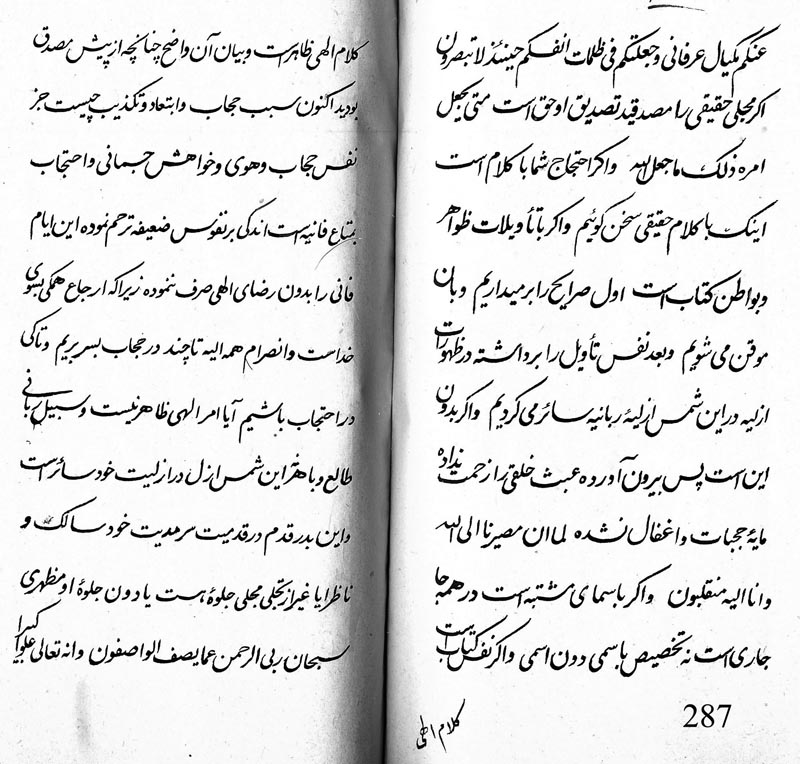 عنکم مکیال عرفانی و جعلتکم فی ظلمات انفسکم حینئذ لا تبصرون
اکر مجلی حقیقی را مصدقید تصدیق او حق است متی یجعل
امره ذلک ما جعل الله واکر احتجاج شما با کلام است
اینک با کلام حقیقی سخن کوئیم واکر با تأویلات ظواهر
و بواطن کتاب است اول صرایح را بر میداریم و بان
موقن می شویم و بعد نفس تأویل را برداشته در ظهورات
ازلیه در این شمس ازلیهٔ ربانیه سائر می کردیم واکر بدون
این است پس بیرون آورده عبث خلقی را زحمت نداده
مایهٔ حجبات و اغفال نشده لما ان مصیرنا الی الله
و انا الیه منقلبون واکر باسمای مشتبه است در همه جا
جاری است نه تخصیص باسمی دون اسمی واکر نفس کتاب است
کلام الهی
287
کلام الهی ظاهر است و بیان آن واضح چنانچه از پیش مصدق
بودید اکنون سبب حجاب و ابتعاد و تکذیب چیست جز
نفس حجاب و هوی و خواهش جسمانی و احتجاب
بمتاع فانیه است اندکی بر نفوس ضعیفه ترحم نموده این ایام
فانی را بدون رضای الهی صرف ننموده زیرا که ارجاع همکی بسوی
خداست و انصرام همه الیه تا چند در حجاب بسر بریم و تا کی
در احتجاب باشیم آیا امر الهی ظاهر نیست و سبیل ربانی
طالع و باهر این شمس ازل در ازلیت خود سائر است
و این بدر قدم در قدمیت سرمدیت خود سالک و
ناظر ایا غیر از تجلی مجلی جلوهٔ هست یا دون جلوهٔ او مظهری
سبحان ربی الرحمن عما یصف الواصفون و انه تعالی علوا کبیرا